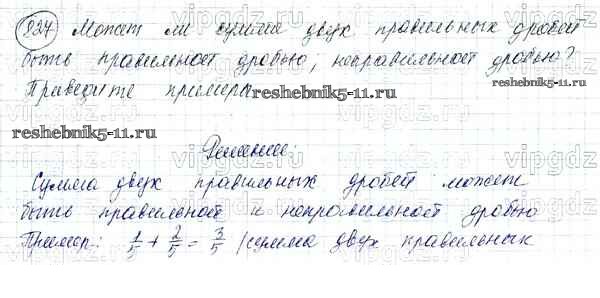 827 Может ли сумма двух правильных дробей
быть правильной дробью, неправильной дробью?
Приведите примеры
reshebnik5-11.ru
reshebnik5-11.ru
Решение:
Сумма двух правильных дробей может
быть правильной и неправильной дробью
Пример: 1/5 + 2/5 = 3/5 /сумма двух правильных